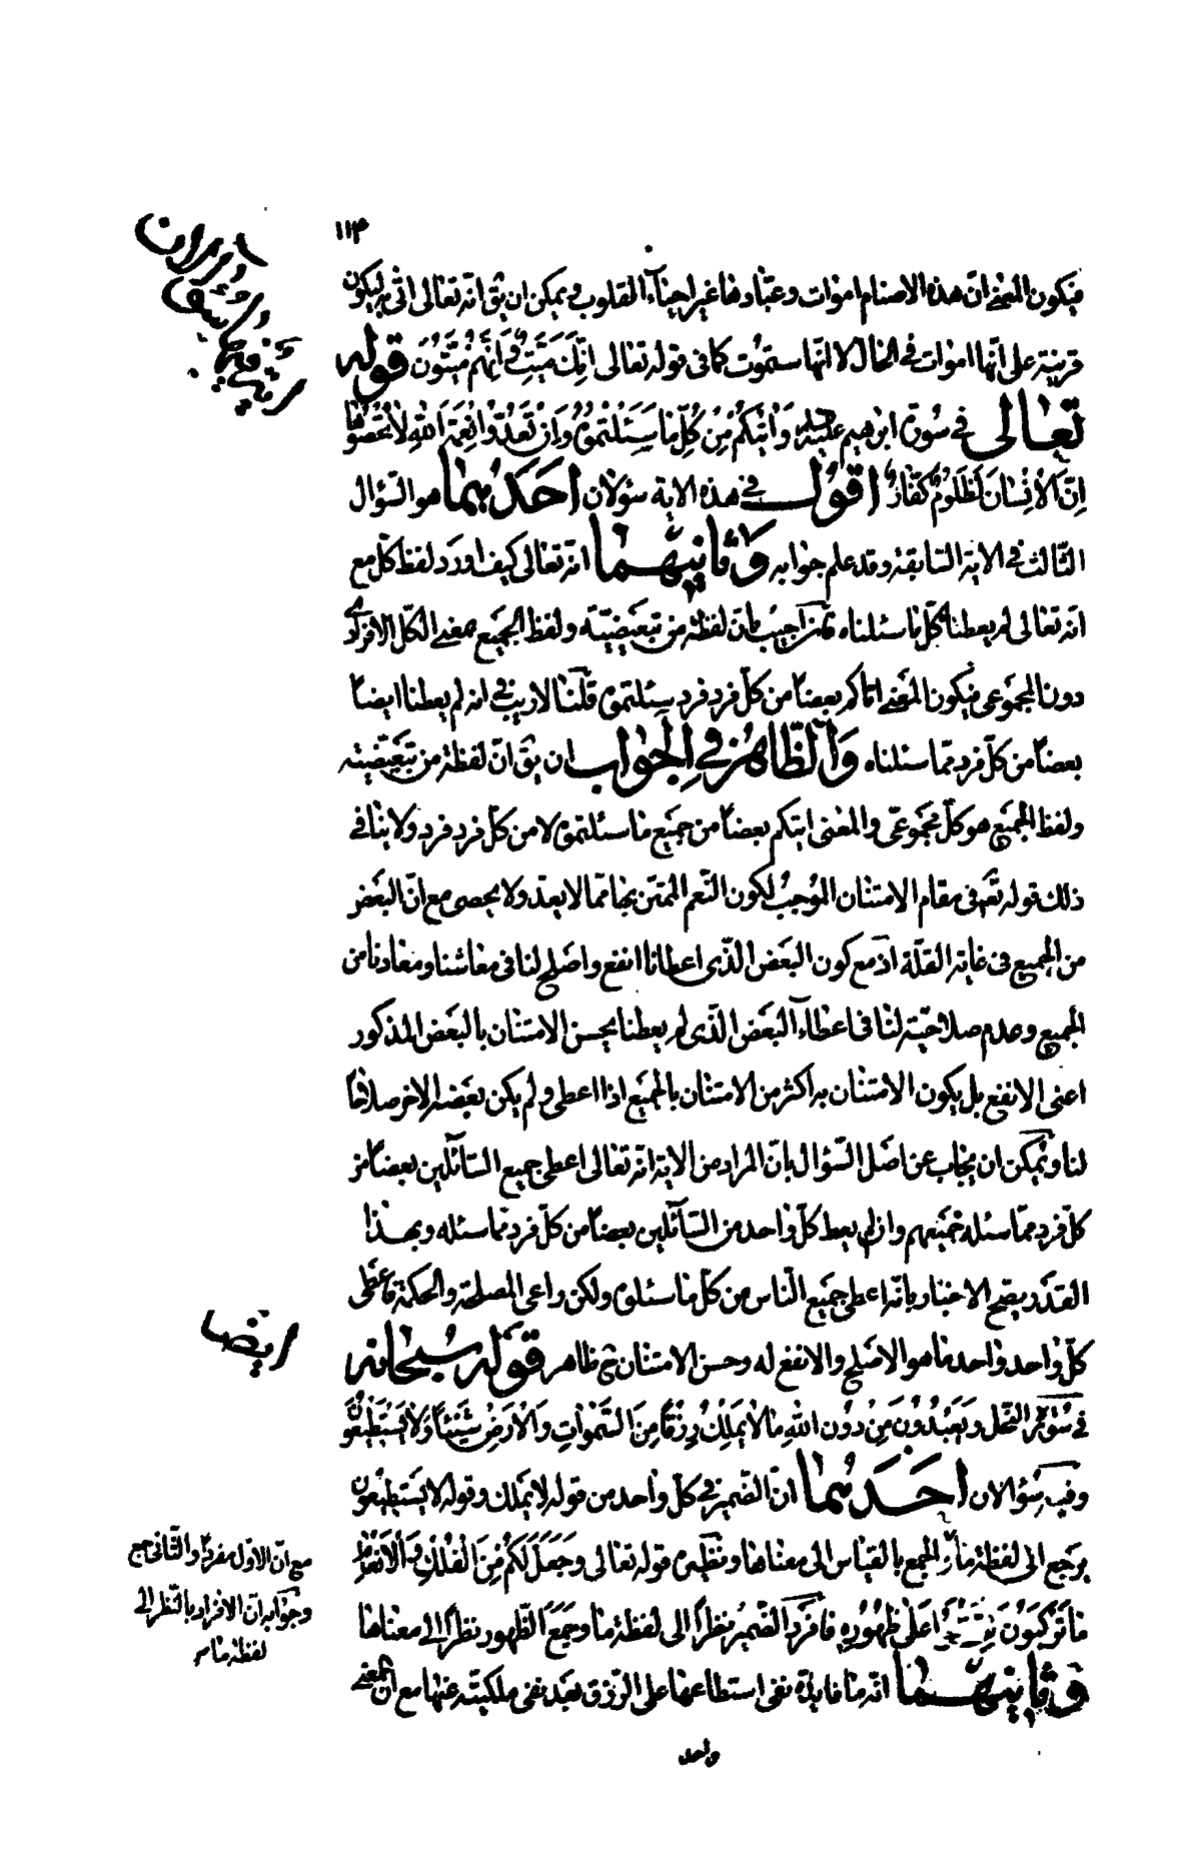 ۱۱۴
فيكون المعنى ان هذه الاصنام اموات وعبادها غير احياء القلوب ويمكن ان يق انه تعالى اتى به ليكون
قرينة على انها اموات فى الحال لا انها ستموت كما فى قوله تعالى انك ميت وانهم ميتون قوله
تعالى فى سورة ابرهيم عليه السلم وَاٰتٰيكُمْ مِنْ كُلِّ مٰا سَئَلْتُمُوهُ وَاِنْ تَعُدُّوا نِعْمَةَ اللهِ لاٰ تُحْصُوهٰا
اِنَّ الْاِنْسٰانَ لَظَلُومٌ كَفّٰارٌ اقول فى هذه الاية سؤلان احدهما هو السؤال
الثالث فى الاية السابقة وقد علم جوابه وثانيهما انه تعالى كيف اورد لفظ كل مع
انه تعالى لم يعطنا كل ما سئلناه فمن اجيب بان لفظة من تبعيضية ولفظ الجميع بمعنى الكل الافرادى
دون المجموعى فيكون المعنى اتاكم بعضا من كل فرد فرد سئلتموه قلنا لا ريب فى انه لم يعطنا ايضا
بعضا من كل فرد مما سئلناه والظاهر فى الجواب ان يق ان لفظة من تبعيضية
ولفظ الجميع هو كل مجموعى والمعنى اتيكم بعضا من جميع ما سئلتموه لا من كل فرد فرد ولا ينافى
ذلك قوله تعم فى مقام الامتنان الموجب لكون النعم الممتن بها مما لا يعد ولا يحصى مع ان البعض
من الجميع فى غاية القلة اذ مع كون البعض الذى اعطانا انفع واصلح لنا فى معاشنا ومعادنا من
الجميع وعدم صلاحيته لنا فى اعطاء البعض الذى لم يعطنا يحسن الامتنان بالبعض المذكور
اعنى الانفع بل يكون الامتنان به اكثر من الامتنان بالجميع اذا اعطى ولم يكن بعضه الاخر صلاحا
لنا ويمكن ان يجاب عن اصل السؤال بان المراد من الاية انه تعالى اعطى جميع السائلين بعضا من
كل فرد مما سئله جميعهم وان لم يعط كل واحد من السائلين بعضا من كل فرد مما سئله وبهذا
القدر يصح الاخبار بانه اعطى جميع الناس من كل ما سئلوه ولكن راعى المصلحة والحكمة فاعطى
كل واحد واحد ما هو الاصلح والانفع له وحسن الامتنان ح ظاهر قوله سبحانه
فى سورة النحل وَيَعْبُدُونَ مِنْ دُونِ اللهِ مٰا لاٰ يَمْلِكُ رِزْقًا مِنَ السَّمٰوٰاتِ وَالْاَرْضِ شَيْئًا وَلاٰ يَسْتَطِيعُونَ
وفيه سؤالان احدهما ان الضمير فى كل واحد من قوله لا يملك وقوله لا يستطيعون
يرجع الى لفظة ما والجمع بالقياس الى معناها ونظيره قوله تعالى وَجَعَلَ لَكُمْ مِنَ الْفُلْكِ وَالْاَنْعٰامِ
مٰا تَرْكَبُونَ لِتَسْتَوُا عَلىٰ ظُهُورِهِ فافرد الضمير نظرا الى لفظة ما وجمع الظهور نظرا الى معناها
وثانيهما انه ما فايدة نفى استطاعتها على الرزق بعد نفى ملكيته عنها مع ان المعنى
واحد
ايضا
مع ان الاول مفرد والثانى جمع
وجوابه ان الافراد بالنظر الى
لفظة ما